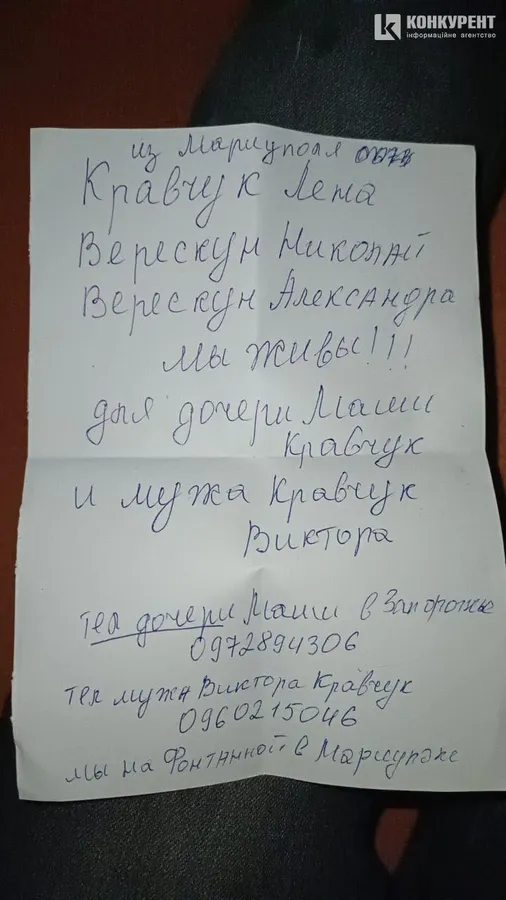 КОНКУРЕНТ
інформаційне агентство
из Мариуполя
Кравчук Лена
Верескун Николай
Верескун Александра
мы живы!!!
для дочери Маши
Кравчук
и мужа Кравчук
Виктора
тел дочери Маши в Запорожье
0972894306
тел мужа Виктора Кравчук
0960215046
мы на Фонтанной в Мариуполе